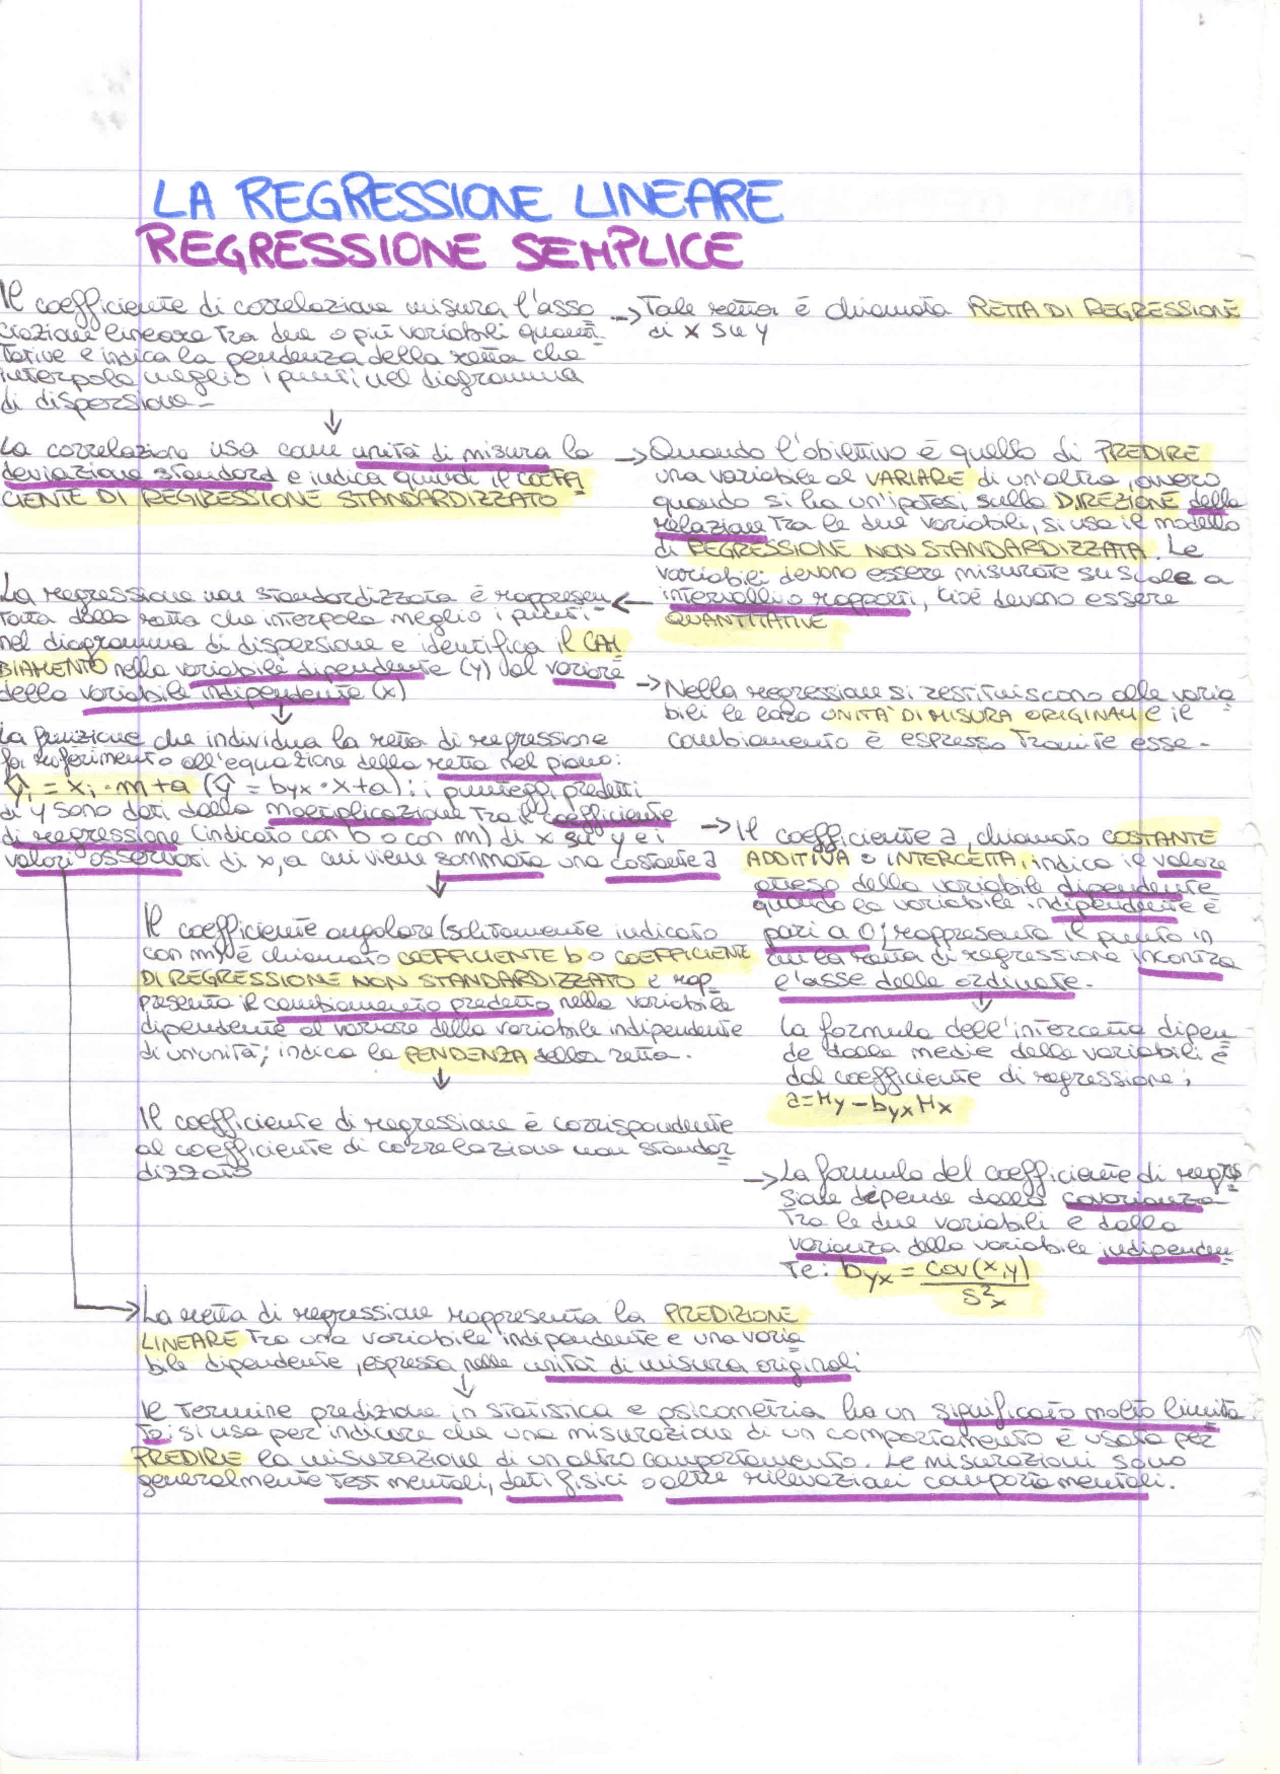 LA REGRESSIONE LINEARE
REGRESSIONE SEMPLICE
Il coefficiente di correlazione misura l'asso
ciazione lineare tra due o più variabili quanti
tative e indica la pendenza della retta che
interpola meglio i punti nel diagramma
di dispersione -
→ Tale retta è chiamata RETTA DI REGRESSIONE
di x su y
↓
La correlazione usa come unità di misura la
deviazione standard e indica quindi il COEFFI
CIENTE DI REGRESSIONE STANDARDIZZATO
→ Quando l'obiettivo è quello di PREDIRE
una variabile al VARIARE di un'altra, ovvero
quando si ha un'ipotesi sulla DIREZIONE della
relazione tra le due variabili, si usa il modello
di REGRESSIONE NON STANDARDIZZATA. Le
variabili devono essere misurate su scale a
intervalli o rapporti, cioè devono essere
QUANTITATIVE
←
La regressione non standardizzata è rappresen
tata dalla retta che interpola meglio i punti
nel diagramma di dispersione e identifica il CAM
BIAMENTO nella variabile dipendente (y) al variare
della variabile indipendente (x)
→ Nella regressione si restituiscono alle varia
bili le loro UNITÀ DI MISURA ORIGINALI e il
cambiamento è espresso tramite esse -
↓
La funzione che individua la retta di regressione
fa riferimento all'equazione della retta nel piano:
ŷᵢ = xᵢ · m + a (ŷ = byx · x + a): i punteggi predetti
di y sono dati dalla moltiplicazione tra il coefficiente
di regressione (indicato con b o con m) di x su y e i
valori osservati di x, a cui viene sommata una costante a
→ Il coefficiente a, chiamato COSTANTE
ADDITIVA o INTERCETTA, indica il valore
atteso della variabile dipendente
quando la variabile indipendente è
pari a 0; rappresenta il punto in
cui la retta di regressione incontra
l'asse delle ordinate.
↓
La formula dell'intercetta dipen
de dalle medie delle variabili e
dal coefficiente di regressione;
a = My - byx Mx
↓
Il coefficiente angolare (solitamente indicato
con m) è chiamato COEFFICIENTE b o COEFFICIENTE
DI REGRESSIONE NON STANDARDIZZATO e rap-
presenta il cambiamento predetto nella variabile
dipendente al variare della variabile indipendente
di un'unità; indica la PENDENZA della retta.
↓
Il coefficiente di regressione è corrispondente
al coefficiente di correlazione non standar
dizzato
→ La formula del coefficiente di regres
sione dipende dalla covarianza
tra le due variabili e dalla
varianza della variabile indipenden
te: byx = Cov(x,y) / S²x
→ La retta di regressione rappresenta la PREDIZIONE
LINEARE tra una variabile indipendente e una varia
bile dipendente, espressa nelle unità di misura originali
↓
Il termine predizione in statistica e psicometria ha un significato molto limita
to: si usa per indicare che una misurazione di un comportamento è usata per
PREDIRE la misurazione di un altro comportamento. Le misurazioni sono
generalmente test mentali, dati fisici o altre rilevazioni comportamentali.